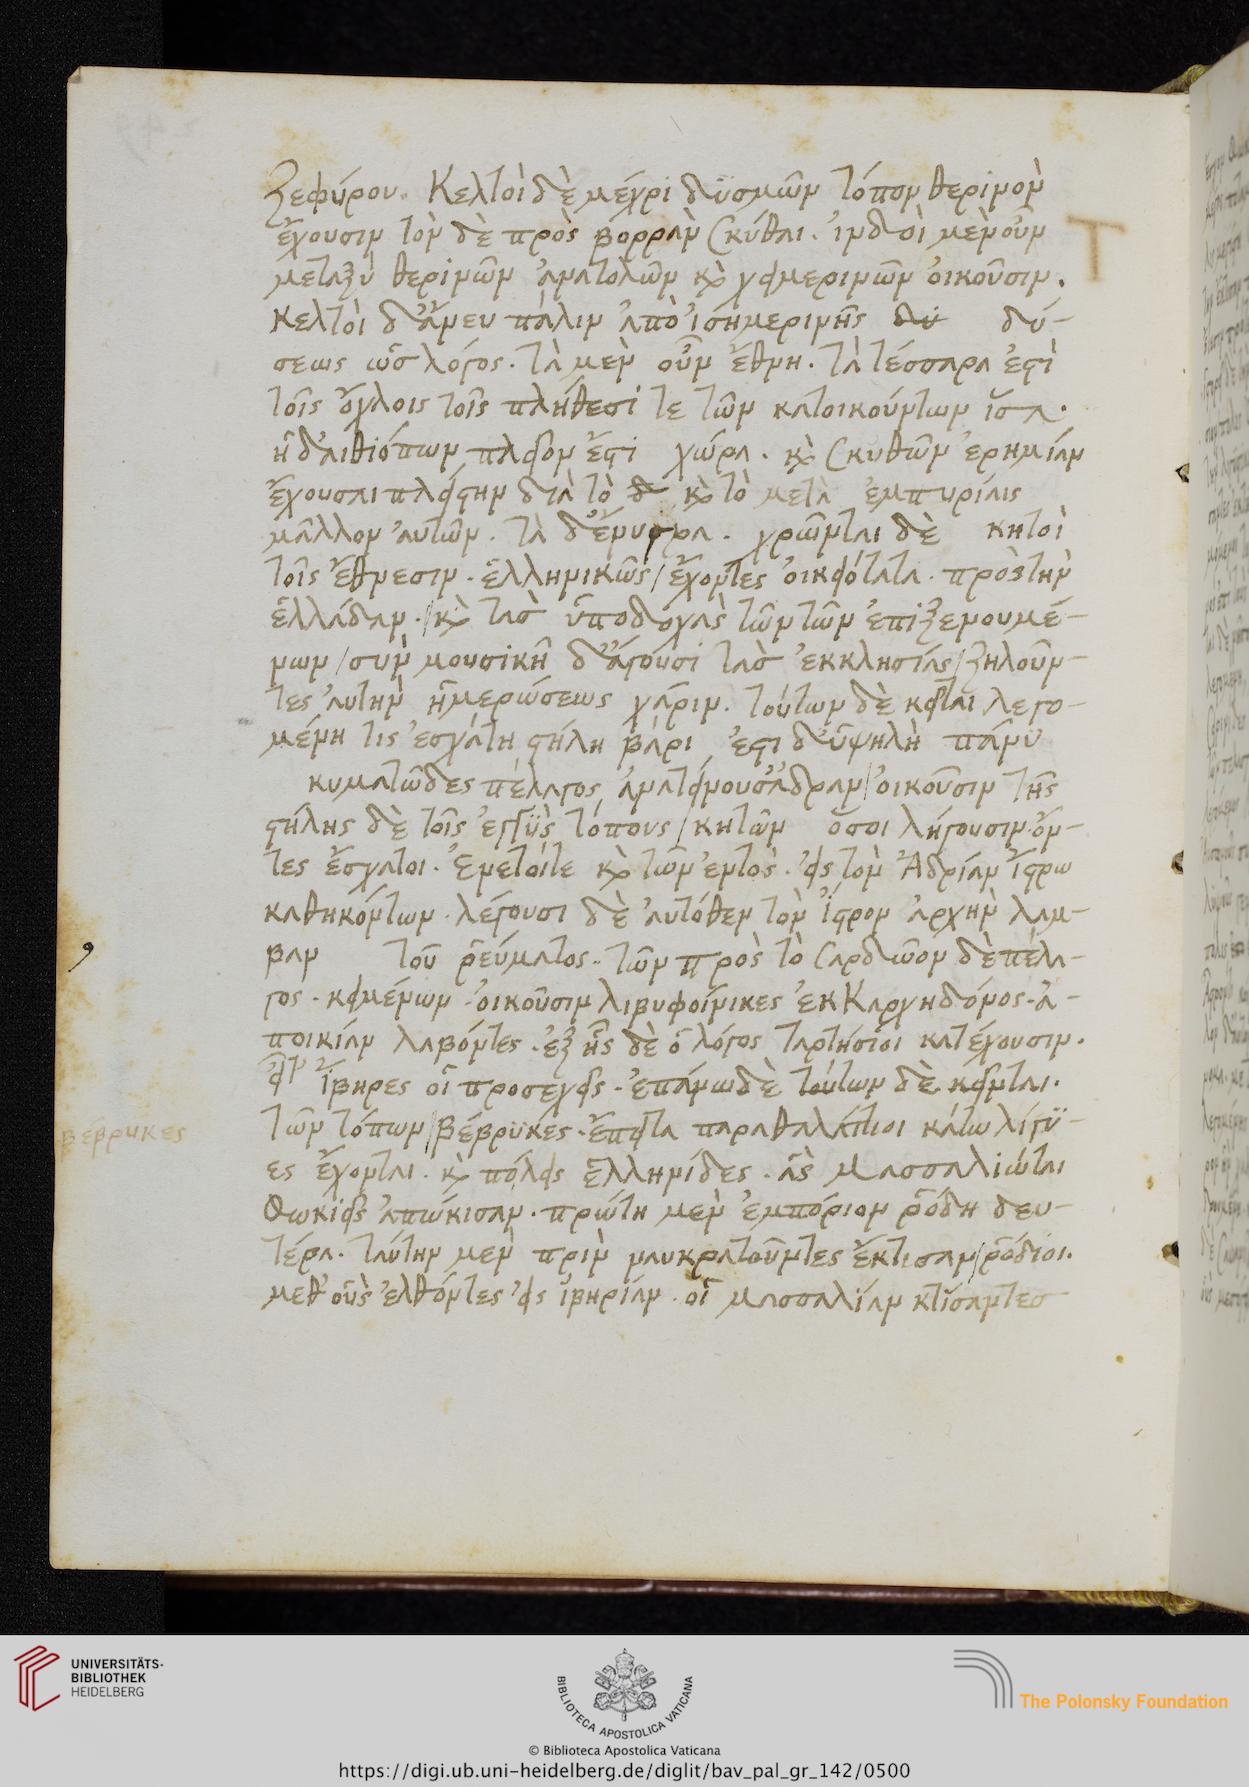 Ζεφύρου. Κελτοὶ δὲ μέχρι δϋσμῶν τόπον θερινὸν
ἔχουσιν τὸν δὲ πρὸς βορρὰν Σκύθαι. ἰνδοὶ μὲν οὖν
μεταξὺ θερινῶν ἀνατολῶν κὶ χειμερινῶν ὀικοῦσιν.
κελτοὶ δ' ἄνευ πάλιν ἀπὸ ἰσημερινῆς δύ-
σεως ὡς λόγος. τὰ μὲν οὖν ἔθνη. τὰ τέσσαρα ἐστὶ
τοῖς ὄχλοις τοῖς πλήθεσί τε τῶν κατοικούντων ἴσα.
ἡ δ' αιθιόπων πλεῖον ἔστι χώρα. κὶ Σκυθῶν ἐρημίαν
ἔχουσαι πλείστην διὰ τὸ κὶ τὸ μετὰ ἐμπυρίαις
μᾶλλον αὐτῶν. τὰ δ' ἔνυγρα. χρῶνται δὲ κητοὶ
τοῖς ἔθνεσιν. ἑλληνικῶς / ἔχοντες ὀικειότατα. πρὸς τὴν
ἑλλάδαν. / κὶ τασ ὑποδοχὰς τῶν τῶν ἐπιξενουμέ-
νων / συν μουσικῆ δ' ἄγουσι τασ ἐκκλησίας / ζηλοῦν-
τες αὐτὴν ἡμερώσεως χάριν. τούτων δὲ κεῖται λεγο-
μένη τις ἐσχάτη στήλη βάρι ἐστι δ' ὑψηλὴ πάνυ
κυματῶδες πέλαγος, ἀνατείνουσ' ἄδραν / ὀικοῦσιν τῆς
στήλης δὲ τοῖς ἐγγϋς τόπους / κητῶν ὅσοι λήγουσιν ὄν-
τες ἔσχατοι. Ἐνετοίτε κὶ τῶν ἐντὸς. εἰς τὸν Ἀδρίαν ἴστρω
καθηκόντων. λέγουσι δὲ αὐτόθεν τὸν ἴστρον ἀρχὴν λαμ-
βαν τοῦ ῥεύματος. τῶν πρὸς τὸ Σαρδῶον δὲ πέλα-
γος. κειμένων. ὀικοῦσιν λιβυφοίνικες ἐκ Καρχηδόνος. ἀ-
ποικίαν λαβόντες. ἐξ ἧς δὲ ὁ λόγος ταρτήσιοι κατέχουσιν.
εἶτ' ἴβηρες οἱ προσεχεῖς. ἐπάνω δὲ τούτων δὲ κεῖνται.
τῶν τόπων / Βέβρϋκές. ἔπειτα παραθαλάττιοι κάτω λίγϋ-
βέβρυκες
ες ἔχονται. κὶ πόλεις ἑλληνίδες. ἃς Μασσαλιώται
Φωκιεῖς ἀπώκισαν. πρώτη μὲν ἐμπόριον ῥόδη δευ-
τέρα. ταύτην μὲν πριν ναυκρατοῦντες ἔκτισαν / ῥόδιοι.
μεθ' οὓς ἐλθόντες εἰς ἰβηρίαν. οἱ μασσαλίαν κτίσαντεσ
Τ
UNIVERSITÄTS-
BIBLIOTHEK
HEIDELBERG
BIBLIOTECA APOSTOLICA VATICANA
The Polonsky Foundation
© Biblioteca Apostolica Vaticana
https://digi.ub.uni-heidelberg.de/diglit/bav_pal_gr_142/0500